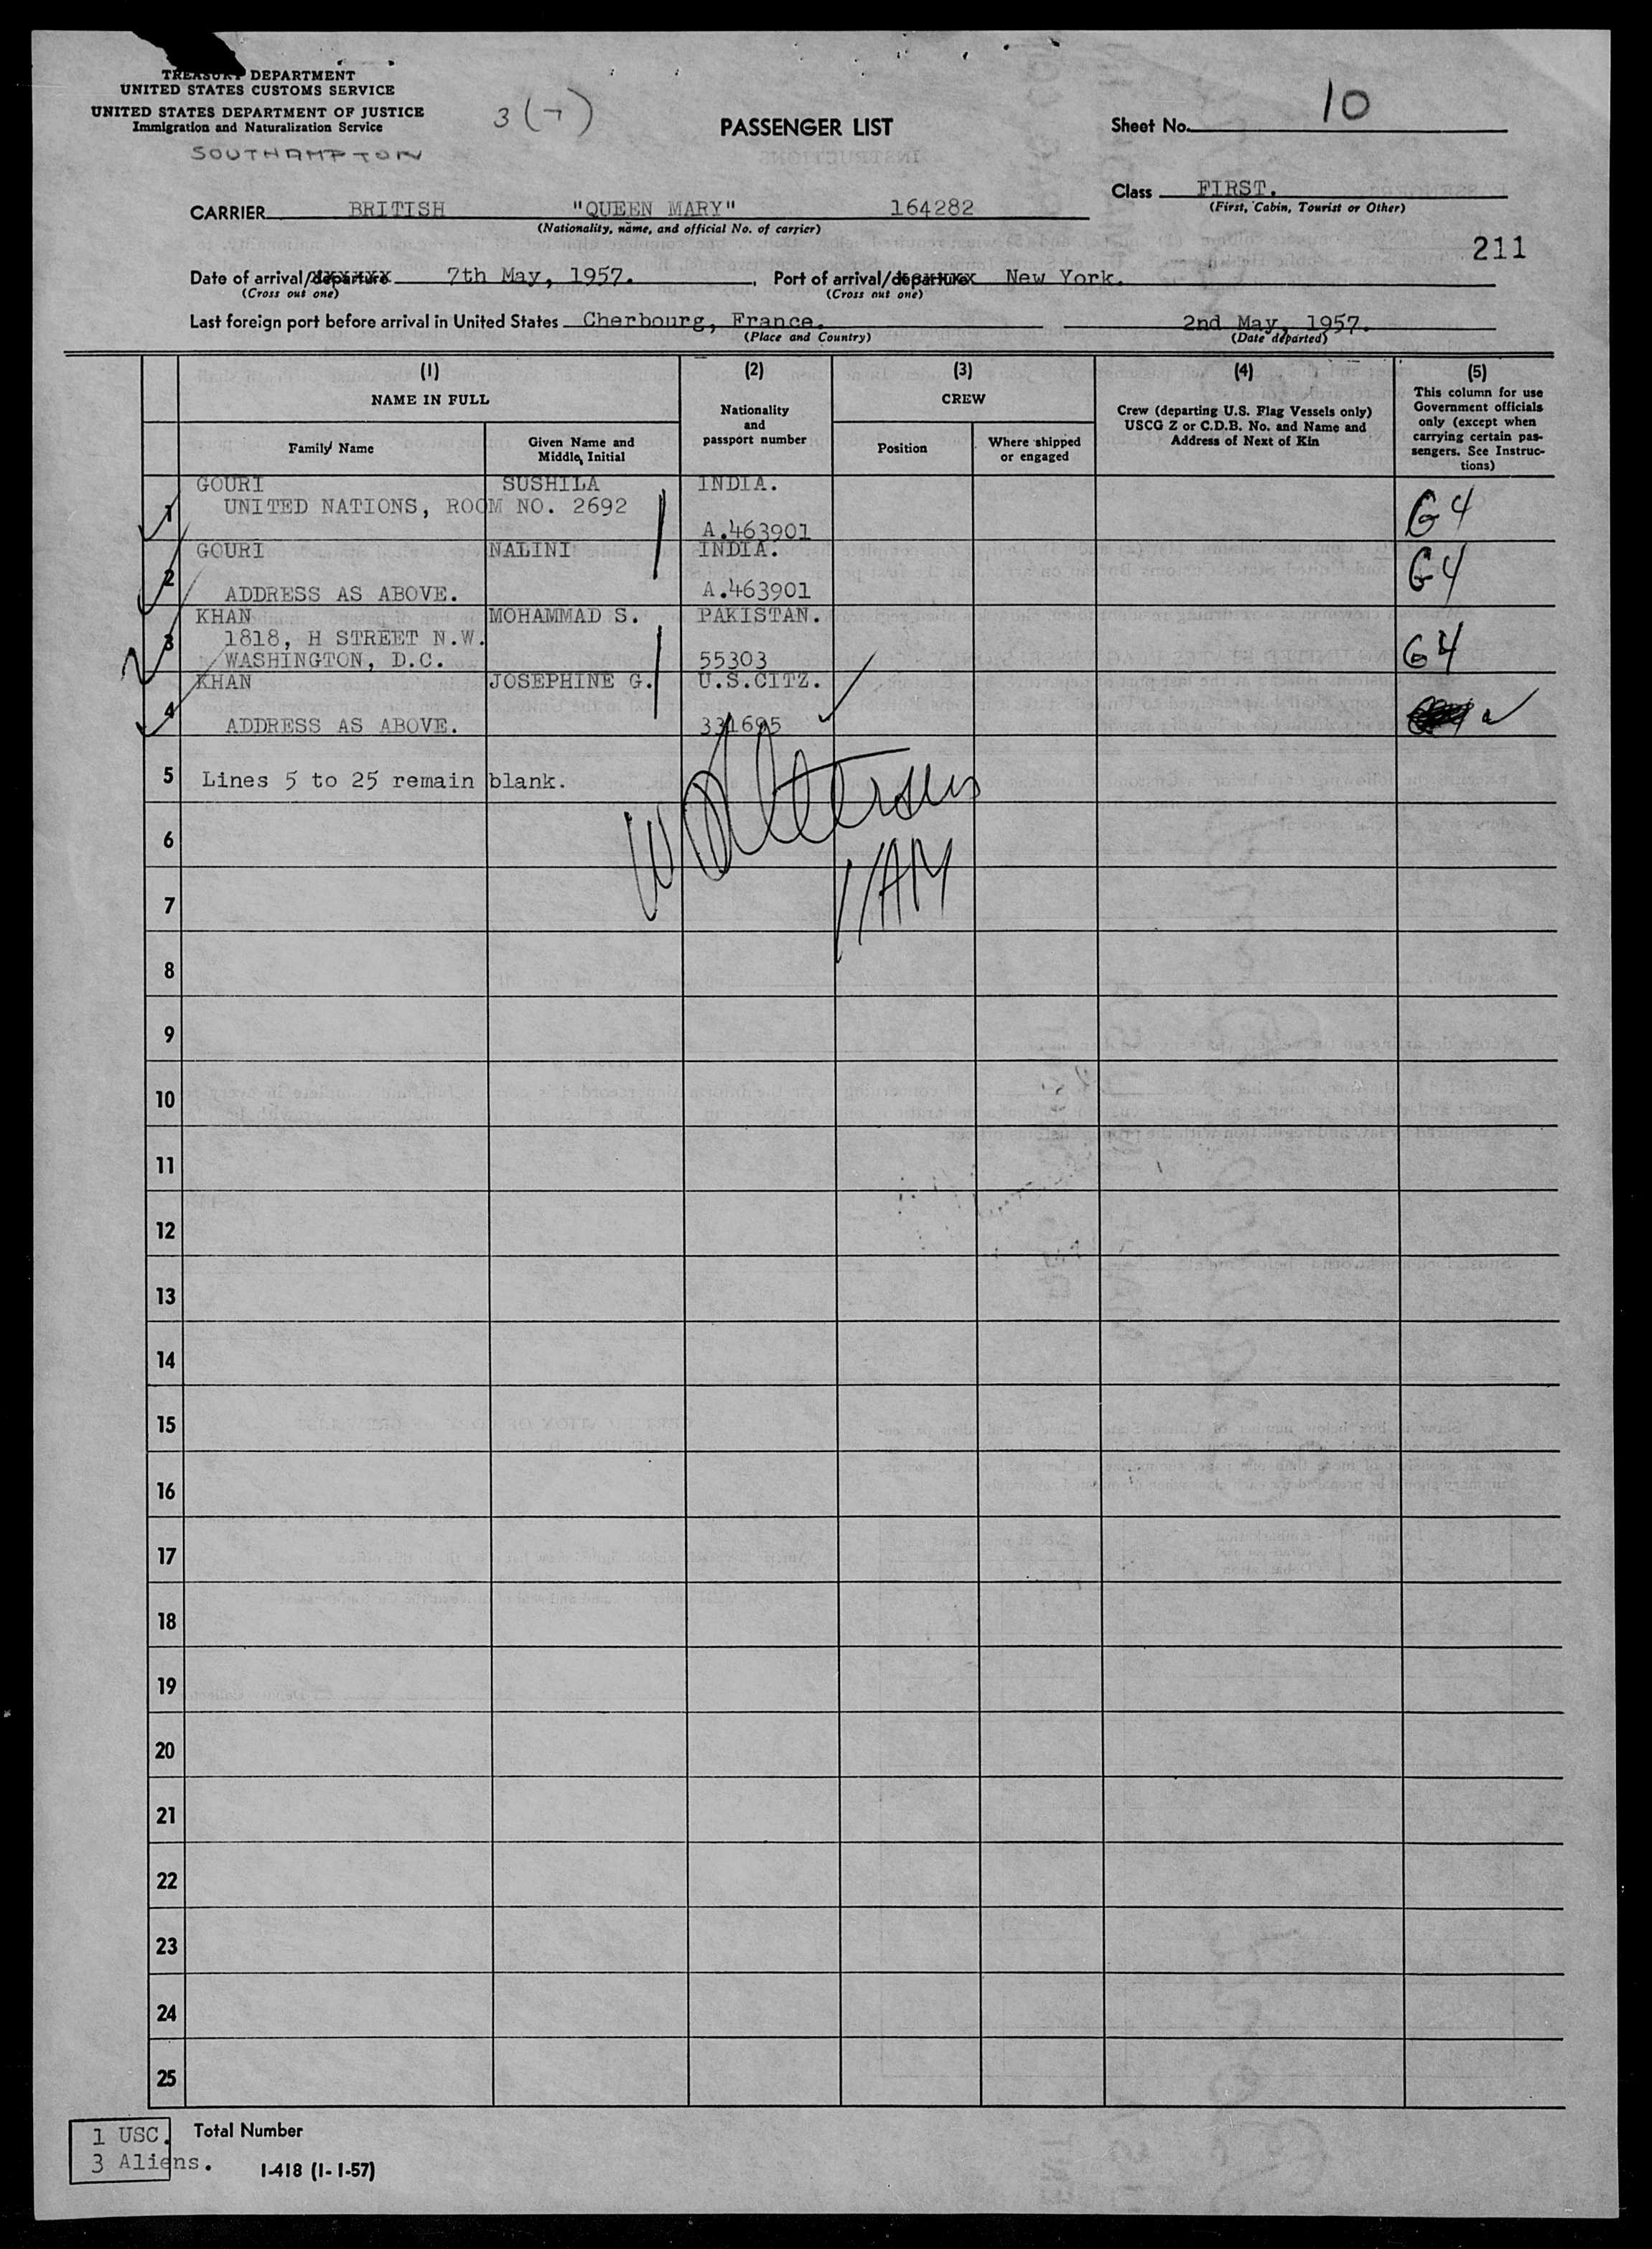 TREASURY DEPARTMENT
UNITED STATES CUSTOMS SERVICE
UNITED STATES DEPARTMENT OF JUSTICE
Immigration and Naturalization Service
SOUTHAMPTON
3 (7)
PASSENGER LIST
Sheet No. 10
Class FIRST.
(First, Cabin, Tourist or Other)
CARRIER BRITISH "QUEEN MARY" 164282
(Nationality, name, and official No. of carrier)
211
Date of arrival/departure 7th May, 1957. Port of arrival/departure New York.
(Cross out one) (Cross out one)
Last foreign port before arrival in United States Cherbourg, France. 2nd May, 1957.
(Place and Country) (Date departed)
(1) NAME IN FULL
Family Name
Given Name and Middle Initial
(2) Nationality and passport number
(3) CREW
Position
Where shipped or engaged
(4) Crew (departing U.S. Flag Vessels only) USCG Z or C.D.B. No. and Name and Address of Next of Kin
(5) This column for use Government officials only (except when carrying certain passengers. See Instructions)
1 GOURI SUSHILA INDIA. G4
UNITED NATIONS, ROOM NO. 2692
A.463901
2 GOURI NALINI INDIA. G4
ADDRESS AS ABOVE. A.463901
3 KHAN MOHAMMAD S. PAKISTAN. G4
1818, H STREET N.W.
WASHINGTON, D.C. 55303
4 KHAN JOSEPHINE G. U.S.CITZ.
ADDRESS AS ABOVE. 331695
5 Lines 5 to 25 remain blank.
6
7
8
9
10
11
12
13
14
15
16
17
18
19
20
21
22
23
24
25
1 USC. Total Number
3 Aliens. I-418 (1-1-57)